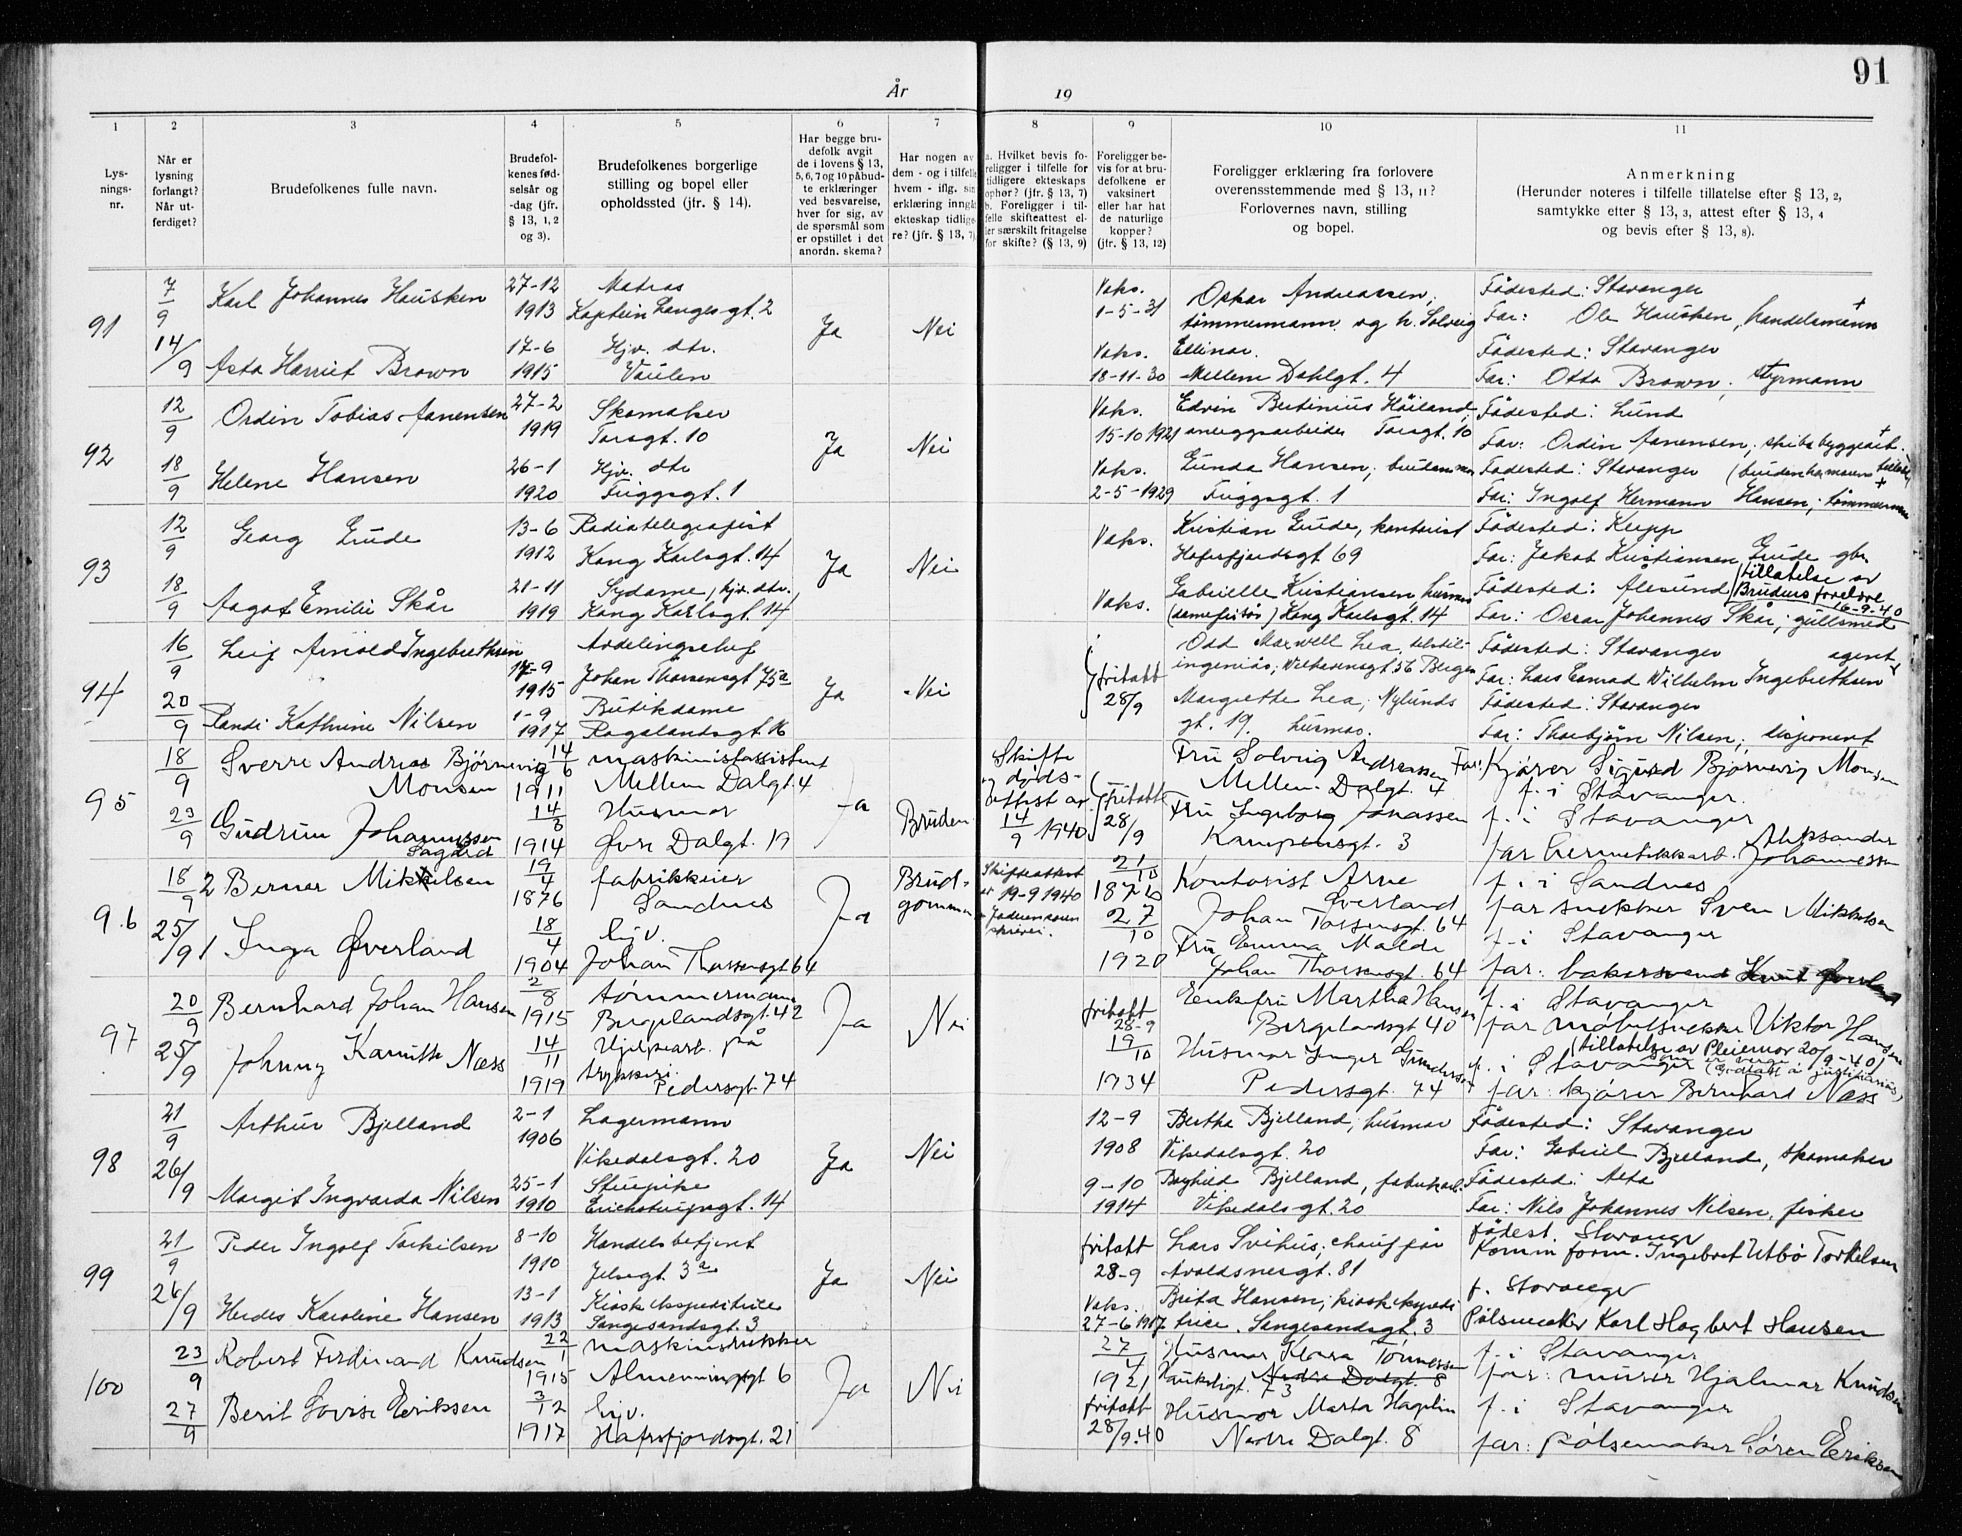 91
År 19
1 2 3 4 5 6 7 8 9 10 11
Lys-
nings-
nr.
Når er
lysning
forlangt?
Når ut-
ferdiget?
Brudefolkenes fulle navn.
Brudefol-
kenes fød-
selsår og
-dag (jfr.
§ 13, 1, 2
og 3).
Brudefolkenes borgerlige
stilling og bopel eller
opholdssted (jfr. § 14).
Har begge bru-
defolk avgit
de i lovens § 13,
5, 6, 7 og 10 påbud-
te erklæringer
ved besvarelse,
hver for sig, av
de spørsmål som
er opstillet i det
anordn. skema?
Har nogen av
dem - og i tilfelle
hvem - iflg. sin
erklæring inngåt
ekteskap tidlige-
re? (jfr. § 13, 7)
a. Hvilket bevis fo-
religger i tilfelle for
tidligere ekteskaps
ophør? (jfr. § 13, 7)
b. Foreligger i til-
felle skifteattest el-
ler særskilt fritagelse
for skifte? (§ 13, 9)
Foreligger be-
vis for at bru-
defolkene er
vaksinert
eller har hat
de naturlige
kopper?
(jfr. § 13, 12)
Foreligger erklæring fra forlovere
overensstemmende med § 13, 11?
Forlovernes navn, stilling
og bopel.
Anmerkning
(Herunder noteres i tilfelle tillatelse efter § 13, 2,
samtykke etter § 13, 3, attest efter § 13, 4
og bevis efter § 13, 8).
91
7/9 Karl Johannes Hausken 27-12 1913 Matros
Kaptein Langesgt. 2
Ja Nei
Vaks. 1-5-31
Oskar Andreassen,
tømmermann og h. Solveig
Ellinor.
Mellem Dahlgt. 4
Fødested: Stavanger
Far: Ole Hausken, handelsmann +
14/9 Asta Harriet Brown 17-6 1915 Hjv. dtr.
Vaulen
Vaks. 18-11-30
Fødested: Stavanger
Far: Otto Brown, styrmann
92
12/9 Ordin Tobias Aanensen 27-2 1919 Skomaker
Torsgt. 10
Ja Nei
Vaks. 15-10 1921
Edvin Bertinius Høiland,
anleggsarbeider Torsgt. 10
Fødested: Lund
Far: Ordin Aanensen, skibsbyggearb. +
18/9 Helene Hansen 26-1 1920 Hjv. dtr
Figgsgt. 1
Vaks. 2-5-1929
Lunda Hansen, brudens mor
Figgsgt. 1
Fødested: Stavanger
Far: Ingolf Hermann Hansen, tømmermann
93
12/9 Georg Grude 13-6 1912 Radiotelegrafist
Kong Karlsgt. 14
Ja Nei
Vaks.
Kristian Grude, kontorist
Hafrsfjordsgt 69
Fødested: Klepp
Far: Jakob Kristiansen Grude gbr.
18/9 Aagot Emilie Skår 21-11 1919 Sydame, hjv. dtr.
Kong Karlsgt. 14
Vaks.
Gabrielle Kristiansen husmor
Kong Karlsgt. 14
Fødested: Ålesund (tillatelse av
Brudens foreldre
16-9-40
Far: Oscar Johannes Skår, gullsmed
94
16/9 Leif Arnold Ingebrethsen 14-9 1915 Avdelingschef
Johan Thorsensgt 75a
Ja Nei
fritatt 28/9
Odd Maxwell Lea,
ingeniør, Bergen
Fødested: Stavanger agent
Far: Lars Conrad Wilhelm Ingebrethsen
20/9 Randi Kathrine Nilsen 1-9 1917 Butikdame
Rogalandsgt. 16
Margrethe Lea, Nylunds
gt. 19. husmor.
Fødested: Stavanger
Far: Thorbjørn Nilsen, disponent
95
18/9 Sverre Andreas Bjørnevig
Monsen 14/6 1911 maskinistassistent
Mellem Dalgt. 4
Ja Bruden
Skifte
døds-
attest av
14/9 1940
fritatt 28/9
Fru Solveig Andreassen
Mellem Dalgt. 4
Far: Kjører Sigurd Bjørnevig Monsen
f. i Stavanger.
23/9 Gudrun Johannessen
Sagård 14/3 1914 Husmor
Øvre Dalgt. 19
Fru Ingeborg Jonassen
Kampensgt. 3
f. i Stavanger
far hermetikkarb. Aleksander
Johannessen
96
18/9 2 Berner Mikkelsen 19/4 1876 fabrikkeier
Sandnes
Ja Brud-
gommen
Skifteattest
av 19-9 1940
Jæderen soren-
skriveri.
21/10 1876
Kontorist Arne
Øverland
Johan Torsensgt. 64
f. i Sandnes
far snekker Sven Mikkelsen
25/9 1 Inga Øverland 18/4 1904 hjv.
Johan Thorsensgt 64
27/10 1920
Fru Emma Malde
Johan Thorsensgt. 64
f. i Stavanger
far: bakersvend Knut Øverland
97
20/9 Bernhard Johan Hansen 2/8 1915 tømmermann
Bergelandsgt. 42
Ja Nei
fritatt 28-9
Enkefru Martha Hansen
Bergelandsgt 40
f. i Stavanger
far møbelsnekker Viktor Hansen
25/9 Johnny Kamitte Næss 14/11 1919 Hjelpearb. på
trykkeri.
Pedersgt. 74
19/10 1934
Husmor Inger Gundersen
Pedersgt. 74
(tillatelse av Pleiemor 20/9-40)
f. i Stavanger
far: kjører Bernhard Næss
98
21/9 Arthur Bjelland 2-1 1906 Lagermann
Vikedalsgt. 20
Ja Nei
12-9 1908
Bertha Bjelland, husmor
Vikedalsgt. 20
Fødested: Stavanger
Far: Gabriel Bjelland, skomaker
26/9 Margit Ingvarda Nilsen 25-1 1910 Stuepike
Erichstrupsgt. 14
9-10 1914
Borghild Bjelland, fabrikarb.
Vikedalsgt. 20
Fødested: Alta
Far: Nils Johannes Nilsen, fisker
99
21/9 Peder Ingolf Torkilsen 8-10 1910 Handelsbetjent
Jelsegt. 3a
Ja Nei
fritatt 28-9
Lars Svihus, chauffør
Avaldsnesgt. 81
fødest. Stavanger
Komm form. Ingebret Utbø Torkelsen
26/9 Herdis Karoline Hansen 13-1 1913 Kioskekspeditrice
Sangesandsgt. 3
Vaks. 27-6 1917
Berta Hansen, kioskekspedi
trice. Sangesandsgt. 3
f. Stavanger
Pølsemaker Karl Hagbert Hansen
100
23/9 Robert Ferdinand Knudsen 22/1 1915 maskinsnekker
Almenningsgt 6
Ja Nei
27/4 1921
Husmor Klara Tønnessen
Haukeligt. 73
Nedre Dalgt. 8
f. i Stavanger
far: murer Hjalmar Knudsen
27/9 Berit Lovise Eriksen 3/12 1917 hjv.
Hafrsfjordsgt. 21
fritatt 28/9.40
Husmor Marta Haplin
Nedre Dalgt. 8
f. i Stavanger
far: pølsemaker Søren Eriksen